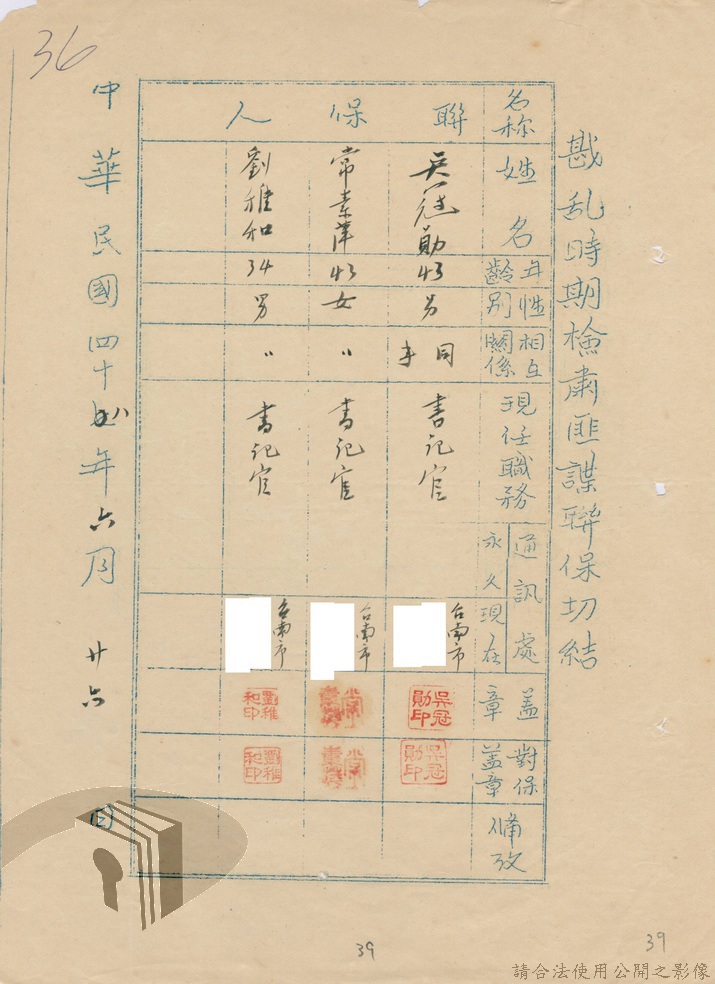 36
戡乱時期檢肅匪諜聯保切結
名称
姓名
年齡
性別
相互關係
現任職務
通訊處
永久
現在
盖章
對保盖章
備攷
聯保人
吳冠勛
43
男
同事
書記官
台南市
吳冠勛印
吳冠勛印
常素萍
43
女
〃
書記官
台南市
劉稚和
34
男
〃
書記官
台南市
劉稚和印
劉稚和印
中華民國四十
年六月廿六日
39
39
請合法使用公開之影像